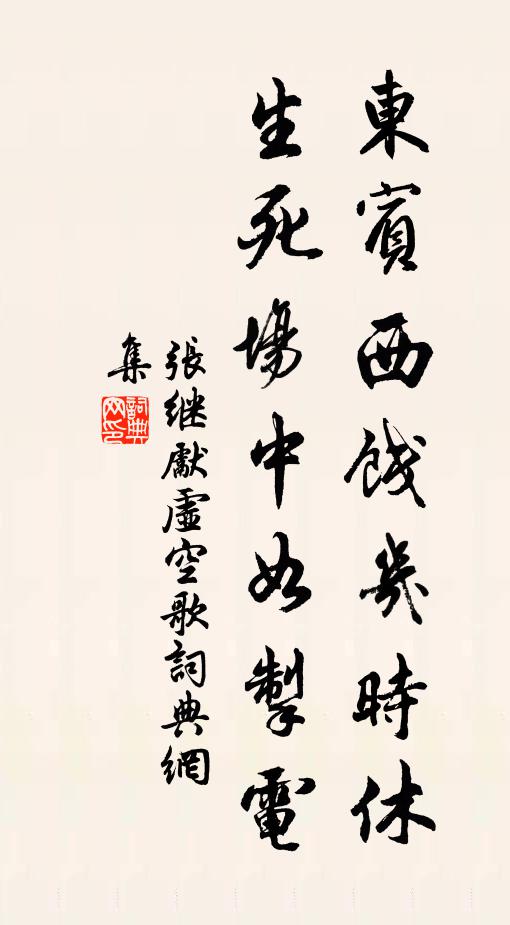 東賓西餞幾時休
生死場中如掣電
張継獻虛空歌詞典網
集
詞典网印